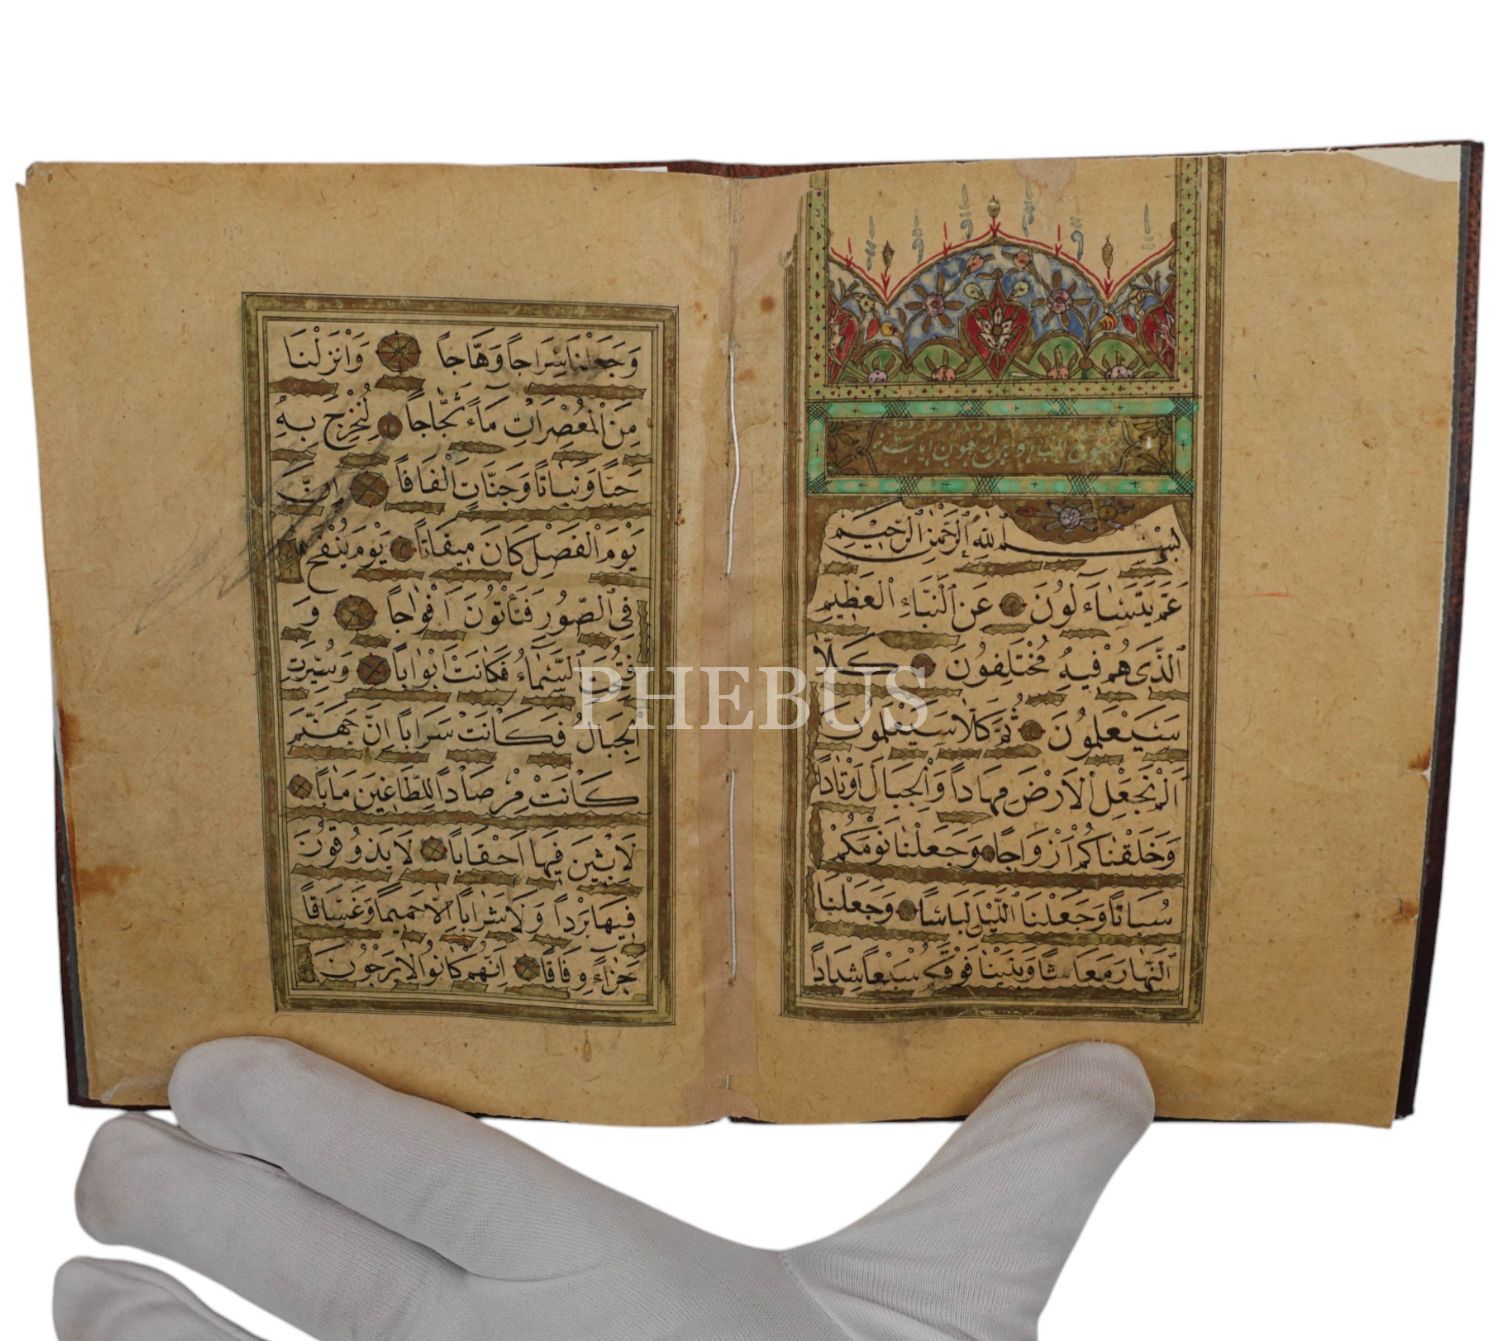 بسم الله الرحمن الرحيم
عَمَّ يَتَسَاءَلُونَ عَنِ النَّبَاءِ الْعَظِيمِ
الَّذِى هُمْ فِيهِ مُخْتَلِفُونَ كَلَّا
سَيَعْلَمُونَ ثُمَّ كَلَّا سَيَعْلَمُونَ
اَلَمْ نَجْعَلِ الْاَرْضَ مِهَادًا وَالْجِبَالَ اَوْتَادًا
وَخَلَقْنَاكُمْ اَزْوَاجًا وَجَعَلْنَا نَوْمَكُمْ
سُبَاتًا وَجَعَلْنَا اللَّيْلَ لِبَاسًا وَجَعَلْنَا
النَّهَارَ مَعَاشًا وَبَنَيْنَا فَوْقَكُمْ سَبْعًا شِدَادًا
وَجَعَلْنَا سِرَاجًا وَهَّاجًا وَاَنْزَلْنَا
مِنَ الْمُعْصِرَاتِ مَاءً ثَجَّاجًا لِنُخْرِجَ بِهِ
حَبًّا وَنَبَاتًا وَجَنَّاتٍ اَلْفَافًا اِنَّ
يَوْمَ الْفَصْلِ كَانَ مِيقَاتًا يَوْمَ يُنْفَخُ
فِى الصُّورِ فَتَأْتُونَ اَفْوَاجًا وَ
فُتِحَتِ السَّمَاءُ فَكَانَتْ اَبْوَابًا وَسُيِّرَتِ
الْجِبَالُ فَكَانَتْ سَرَابًا اِنَّ جَهَنَّمَ
كَانَتْ مِرْصَادًا لِلطَّاغِينَ مَابًا
لَابِثِينَ فِيهَا اَحْقَابًا لَا يَذُوقُونَ
فِيهَا بَرْدًا وَلَا شَرَابًا اِلَّا حَمِيمًا وَغَسَّاقًا
جَزَاءً وِفَاقًا اِنَّهُمْ كَانُوا لَا يَرْجُونَ
PHEBUS